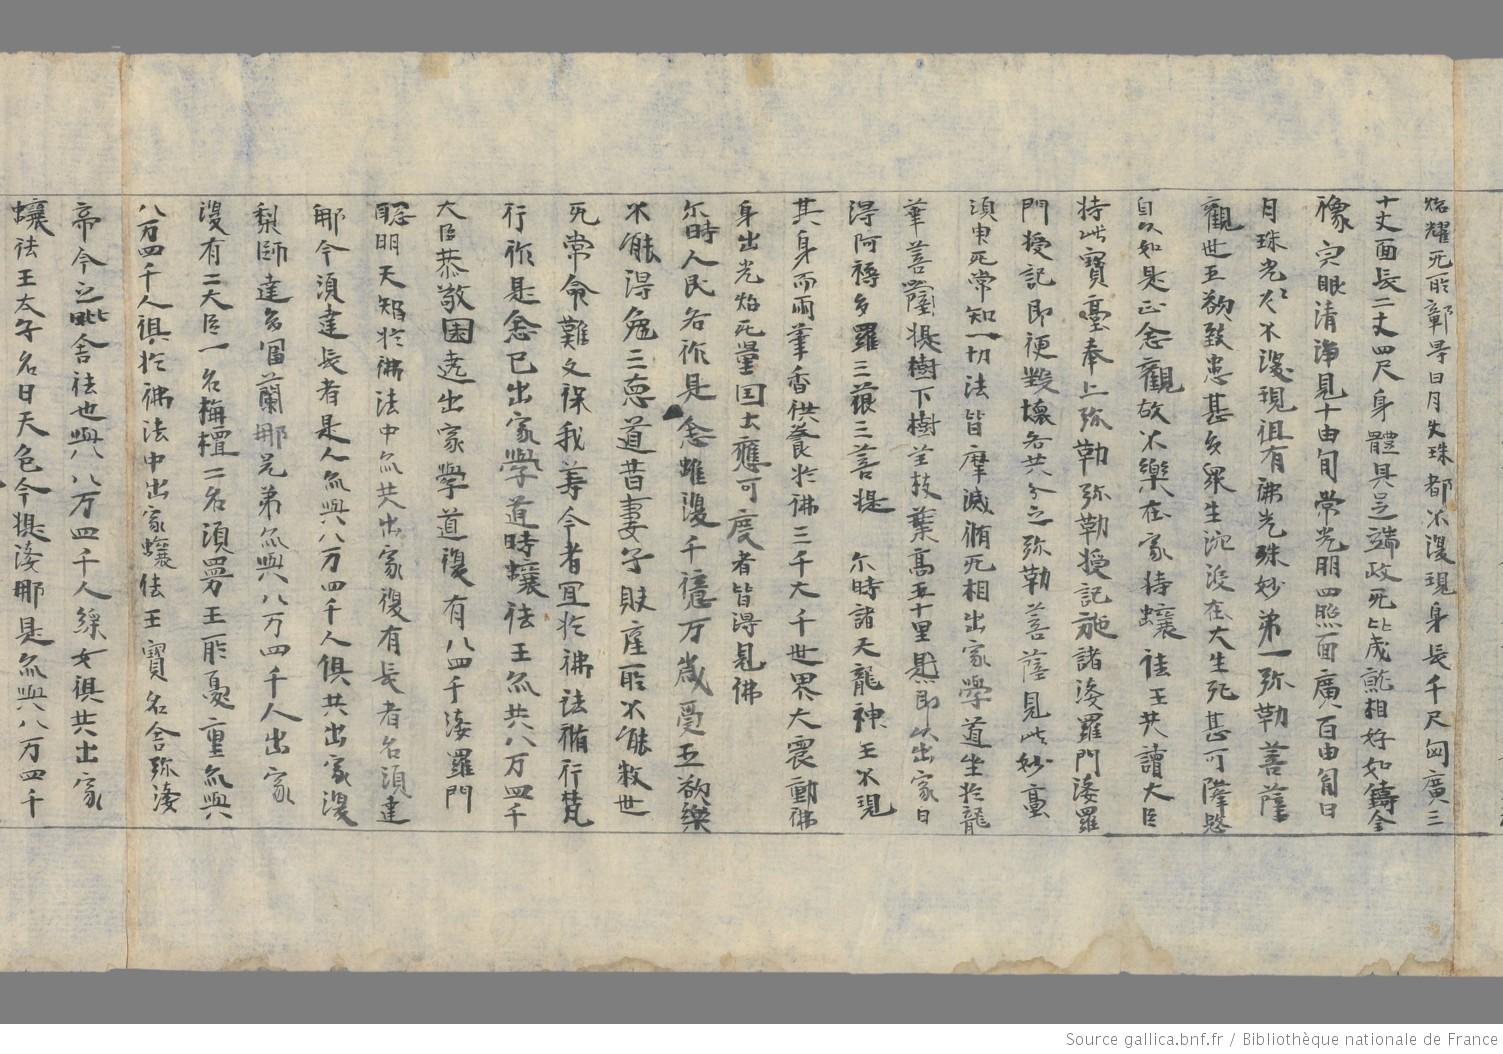 焰耀无所鄣导日月火珠都不復現身長千尺匈廣三
十丈面長二丈四尺身體具足端政无比成就相好如鑄金
像宍眼清淨見十由旬常光明四照面廣百由旬日
月珠光不復現俎有佛光殊妙弟一弥勒菩薩
觀世五欲致患甚多眾生沉没在大生死甚可憐愍
自以如是正念觀故不樂在家時蠰佉王共諸大臣
持此寶臺奉上弥勒弥勒授記施諸婆羅門婆羅
門授記即便毀壞各共分之弥勒菩薩見此妙臺
須臾无常知一切法皆摩滅脩无相出家學道坐於龍
華菩薩提樹下樹莖枝葉高五十里即以出家日
得阿耨多羅三藐三菩提 尒時諸天龍神王不現
其身而雨華香供養於佛三千大千世界大震動佛
身出光焰无量国土應可度者皆得見佛
尒時人民各作是念雖復千億万歲受五欲樂
不能得免三惡道苦妻子財産所不能救世
无常命難久保我等今者宜於佛法脩行梵
行作是念已出家學道時蠰佉王亦共八万四千
大臣恭敬圍遶出家學道復有八四千婆羅門
聡明天智於佛法中亦共出家復有長者名須達
那今須達長者是人亦與八万四千人俱共出家復
梨師達多冨蘭那兄弟亦與八万四千人出家
復有二大臣一名栴檀二名須曼王所愛重亦與
八万四千人俱於佛法中出家蠰佉王寶名舍弥婆
帝今之毗舍佉也與八万四千人綵女俱共出家
蠰佉王太子名曰天色今提婆那是亦與八万四千